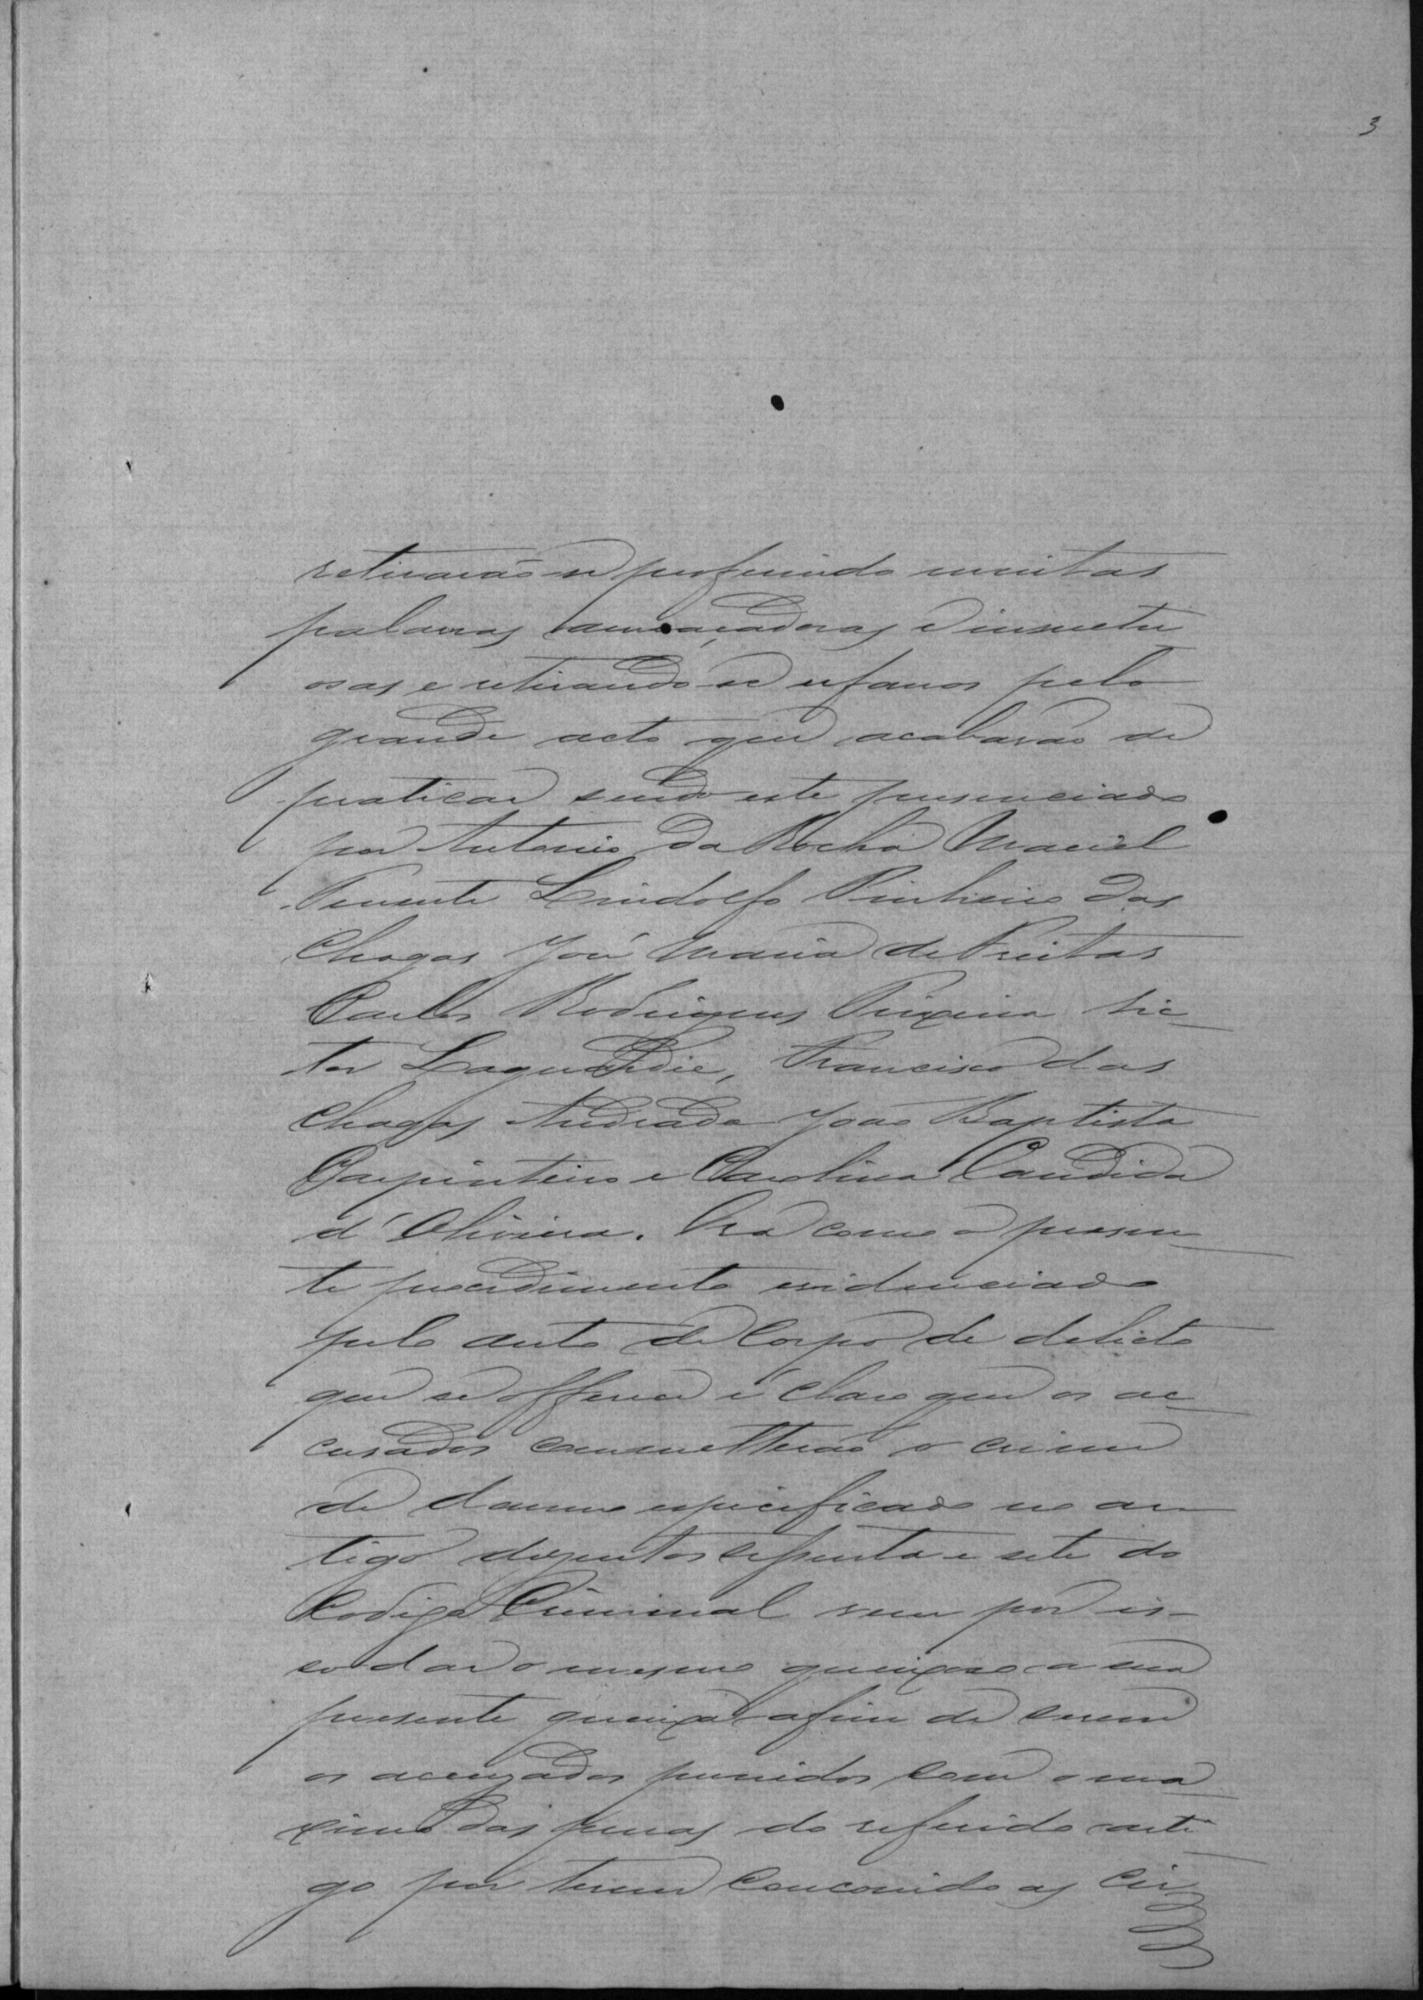 3
retirarão se proferindo muitas
palavras ameaçadoras e insuctu
osas e retirando se ufanos pelo
grande acto que acabarão de
praticar sendo este presenciado
por Antonio da Rocha Maciel
Tenente Lindolfo Pinheiro das
Chagas José Maria de Freitas
Carlos Rodrigues Teixeira Vic-
tor Laguardie, Francisco das
Chagas Andrade João Baptista
Carpinteiro e Carolina Candida
d'Oliveira. Ora como o presen-
te procedimento evidenciado
pelo auto de Corpo de delicto
que se offerece é claro que os ac-
cusados commetterão o crime
de damno especificado no ar-
tigo duzentos sessenta e sete do
Codigo Criminal vem por is-
so dar o mesmo queixoso a sua
presente queixa afim de serem
os accuzados punidos com o ma-
ximo das penas do referido arti-
go por terem concorrido as cir